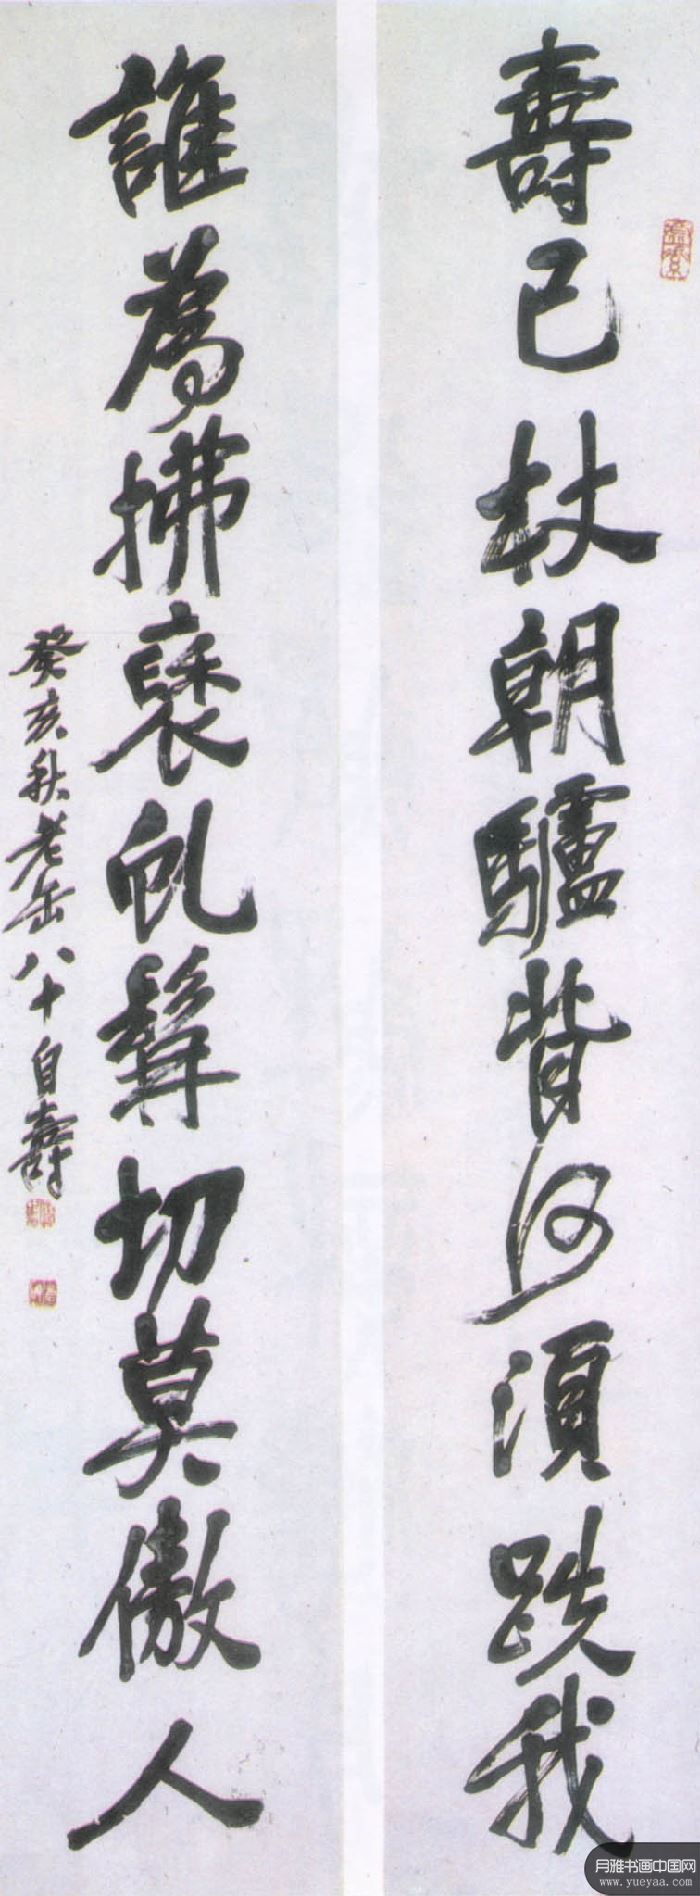 壽已杖朝驢背何須跌我
誰為拂褎虬髯切莫傲人
癸亥秋老缶八十自壽
月雅书画中国网
www.yueyaa.com